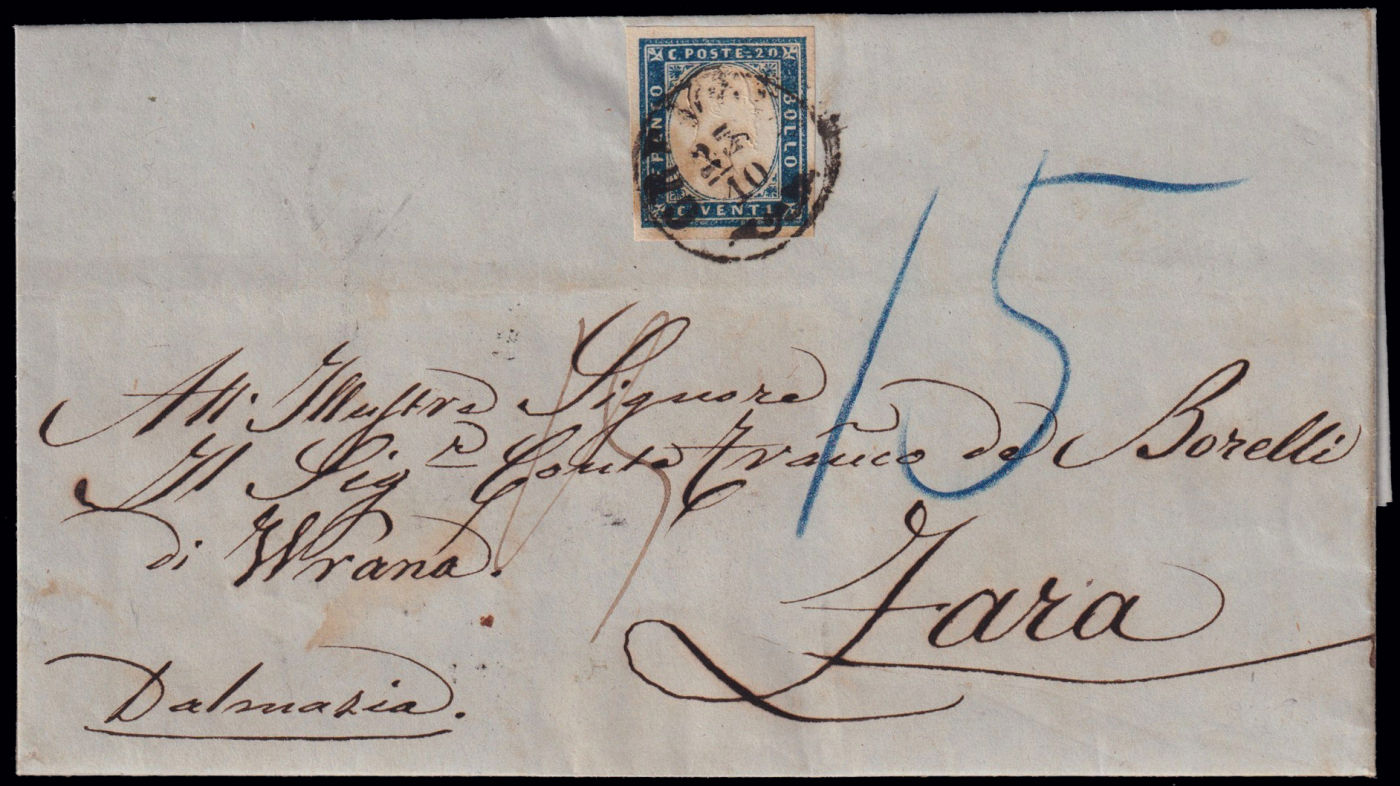 C. POSTE. 20
FRANCO
BOLLO
25
10
C. VENTI
15
All: Illustre Signore
Il Sig.r Conte Franco de Borelli
di Wrana.
Zara
Dalmazia.